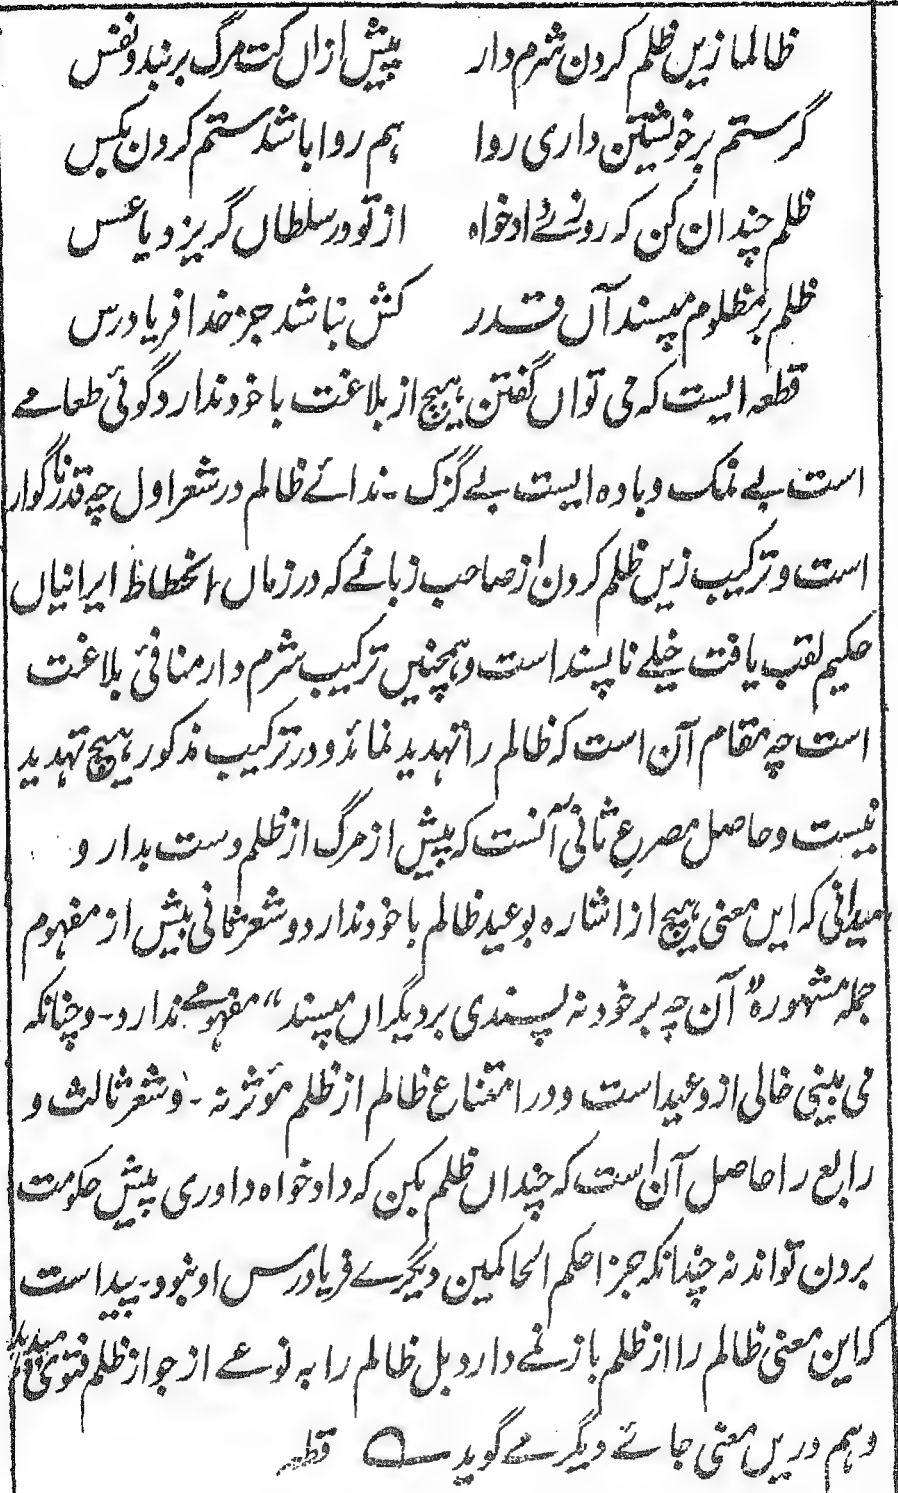 ظالما زیں ظلم کردن شرم دار پیش ازاں کت مرگ بر بندد نفس
گر ستم بر خویشتن داری روا ہم روا باشد ستم کردن بکس
ظلم چندان کن کہ روزے داد خواہ از تو در سلطاں گریزد یا عسس
ظلم بر مظلوم مپسند آں قدر کش نباشد جز خدا فریاد رس
قطعہ ایست کہ می تواں گفتن ہیچ از بلاغت با خود ندارد گوئی طعامے
است بے نمک و بادہ ایست بے گزک ـ ندائے ظالم در شعر اول چہ قدر ناگوار
است و ترکیب زیں ظلم کردن از صاحب زبانے کہ در زماں انحطاط ایرانیاں
حکیم لقب یافت خیلے ناپسند است و ہمچنیں ترکیب شرم دار منافئ بلاغت
است چہ مقام آن است کہ ظالم را تہدید نماند و در ترکیب مذکور ہیچ تہدید
نیست و حاصل مصرعِ ثانی آنست کہ پیش از مرگ از ظلم دست بدار و
میدانی کہ ایں معنی ہیچ از اشارہ بوعید ظالم با خود ندارد و شعر ثانی بیش از مفہوم
جملہ مشہورہ ”آن چہ بر خود نہ پسندی بر دیگراں مپسند“ مفہومے ندارد ـ و چنانکہ
می بینی خالی از وعید است و در امتناع ظالم از ظلم مؤثر نہ ـ و شعر ثالث و
رابع را حاصل آن است کہ چنداں ظلم بکن کہ داد خواہ داوری پیش حکومت
بردن تواند نہ چندانکہ جز احکم الحاکمین دیگرے فریاد رس او نبود ـ پیداست
کہ این معنی ظالم را از ظلم باز نمے دارد بل ظالم را بہ نوعے از جواز ظلم فتوی میدہد
و ہم دریں معنی جائے دیگر مے گوید قطعہ